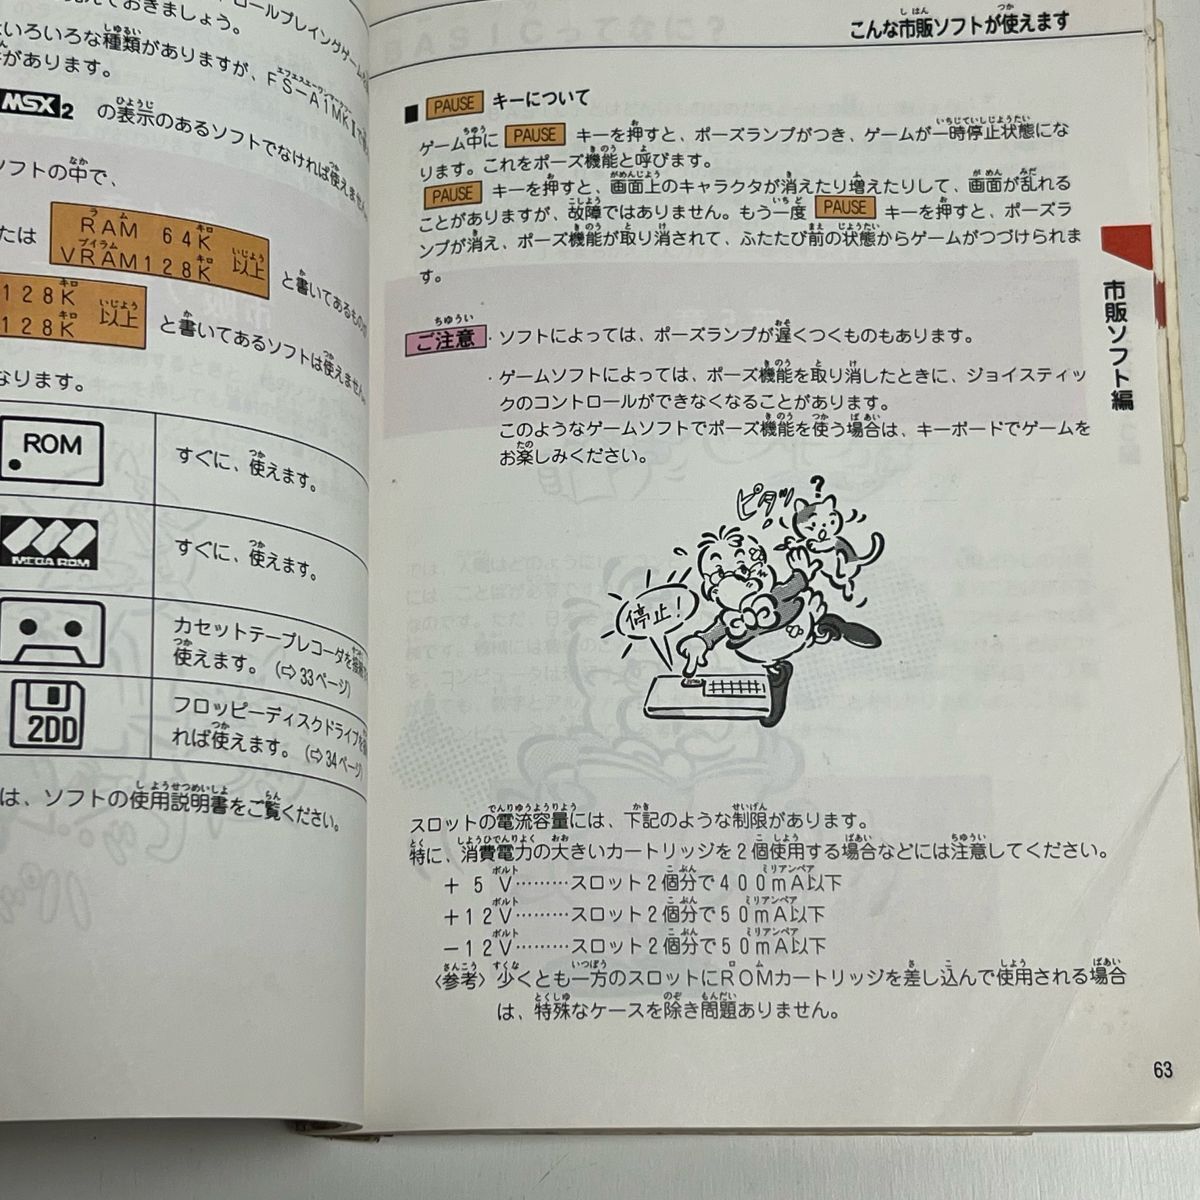 ておきましょう。
ロールプレイングゲーム
いろいろな種類がありますが、FS-A1MKⅡで
があります。
MSX2 の表示のあるソフトでなければ使えません
ソフトの中で、
たは RAM 64K VRAM128K 以上 と書いてあるもの
128K 128K 以上 と書いてあるソフトは使えません
なります。
ROM すぐに、使えます。
MEGA ROM すぐに、使えます。
カセットテープレコーダを接続
使えます。(⇨33ページ)
2DD フロッピーディスクドライブを
れば使えます。(⇨34ページ)
は、ソフトの使用説明書をご覧ください。
こんな市販ソフトが使えます
■ PAUSE キーについて
ゲーム中に PAUSE キーを押すと、ポーズランプがつき、ゲームが一時停止状態にな
ります。これをポーズ機能と呼びます。
PAUSE キーを押すと、画面上のキャラクタが消えたり増えたりして、画面が乱れる
ことがありますが、故障ではありません。もう一度 PAUSE キーを押すと、ポーズラ
ンプが消え、ポーズ機能が取り消されて、ふたたび前の状態からゲームがつづけられま
す。
ご注意 ・ソフトによっては、ポーズランプが遅くつくものもあります。
・ゲームソフトによっては、ポーズ機能を取り消したときに、ジョイスティッ
クのコントロールができなくなることがあります。
このようなゲームソフトでポーズ機能を使う場合は、キーボードでゲームを
お楽しみください。
市販ソフト編
ピタッ
?
停止!
スロットの電流容量には、下記のような制限があります。
特に、消費電力の大きいカートリッジを2個使用する場合などには注意してください。
+5V………スロット2個分で400mA以下
+12V………スロット2個分で50mA以下
−12V………スロット2個分で50mA以下
〈参考〉少くとも一方のスロットにROMカートリッジを差し込んで使用される場合
は、特殊なケースを除き問題ありません。
63